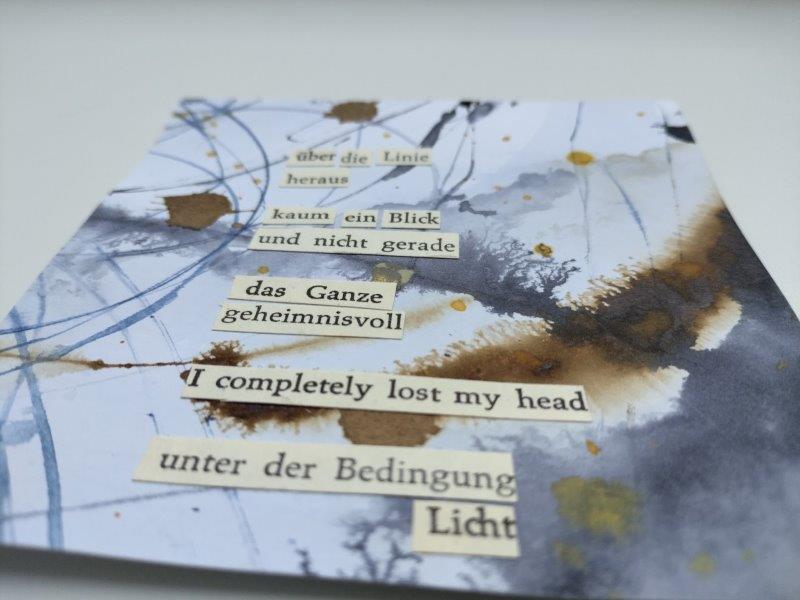 über die Linie
heraus
kaum ein Blick
und nicht gerade
das Ganze
geheimnisvoll
I completely lost my head
unter der Bedingung
Licht